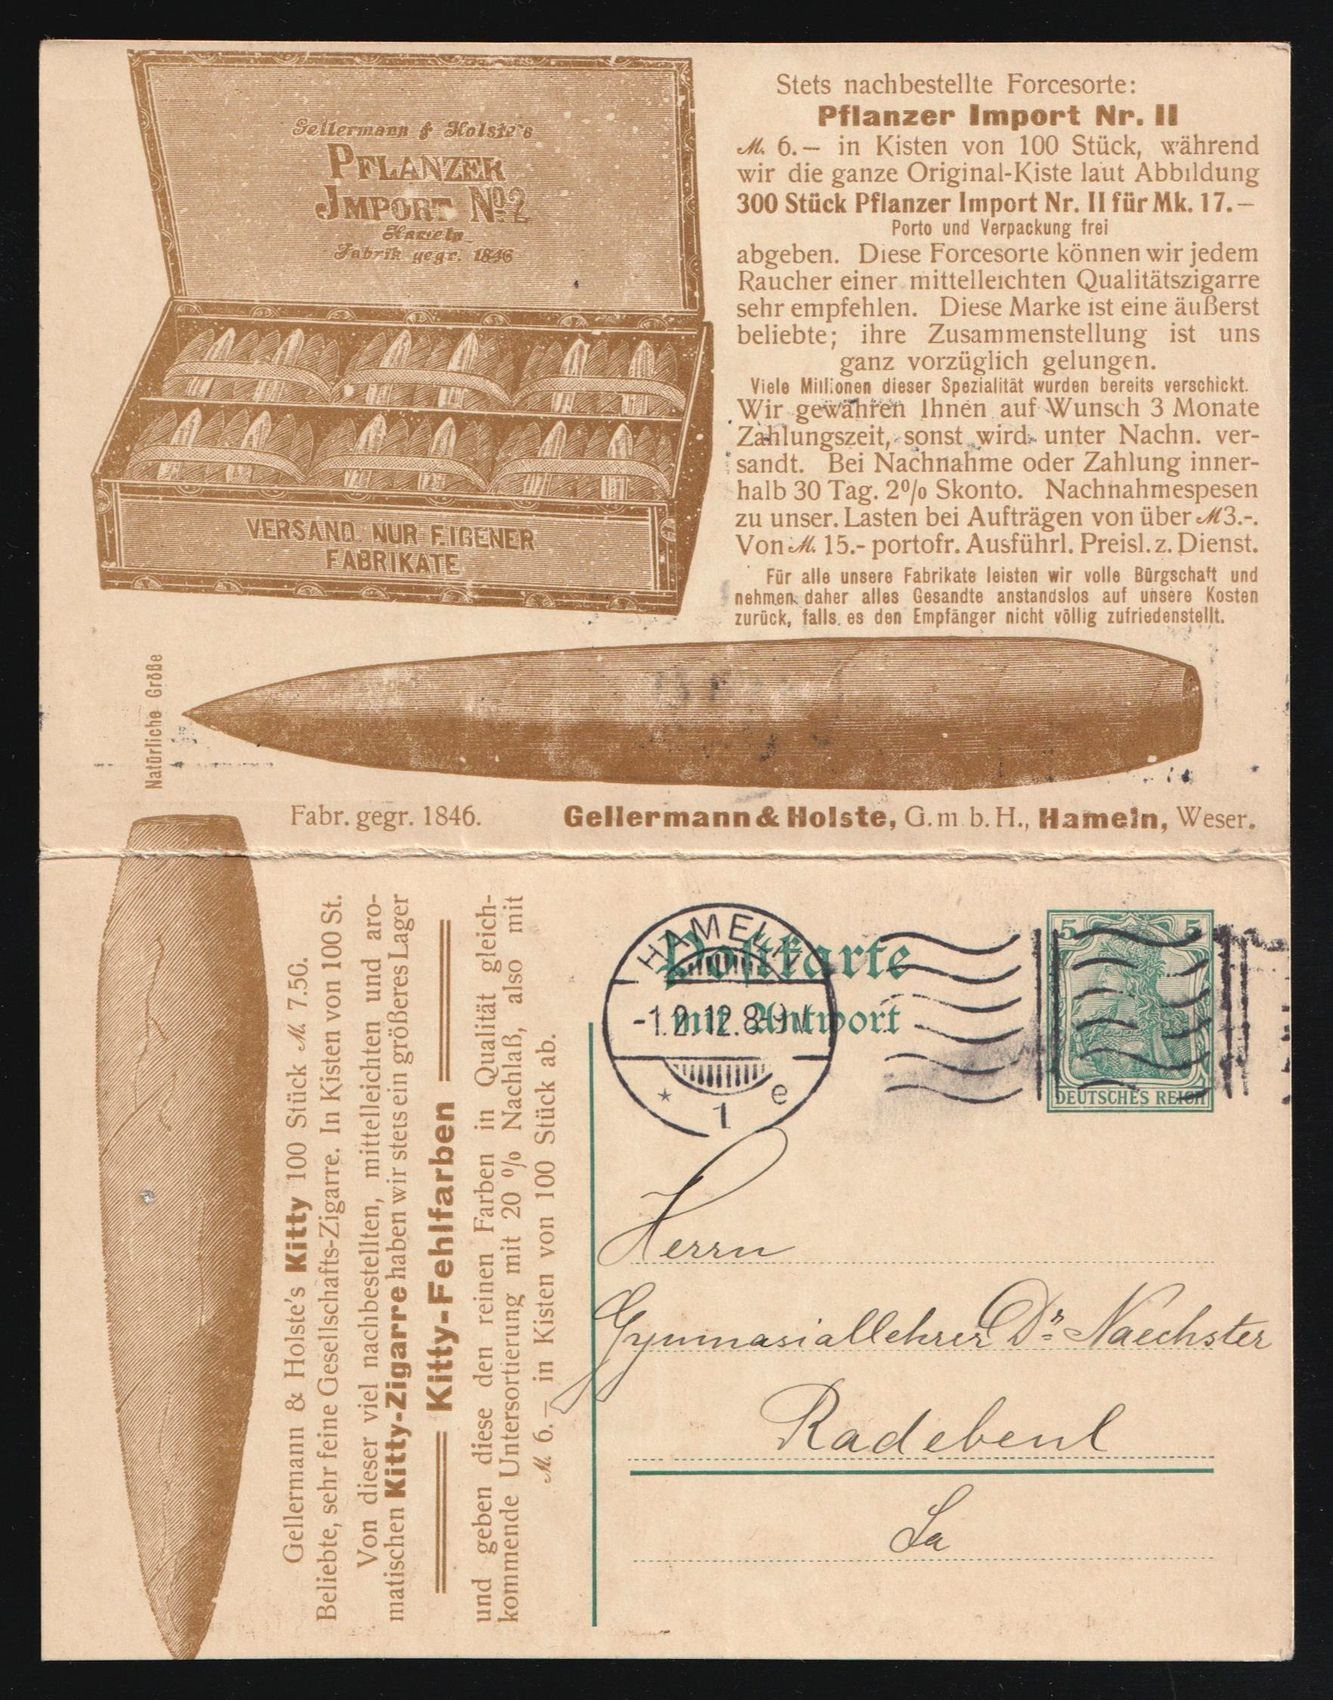 Gellermann & Holste's
PFLANZER
IMPORT No 2
Hameln
Fabrik gegr. 1846
VERSAND NUR EIGENER
FABRIKATE
Stets nachbestellte Forcesorte:
Pflanzer Import Nr. II
M. 6.— in Kisten von 100 Stück, während
wir die ganze Original-Kiste laut Abbildung
300 Stück Pflanzer Import Nr. II für Mk. 17.—
Porto und Verpackung frei
abgeben. Diese Forcesorte können wir jedem
Raucher einer mittelleichten Qualitätszigarre
sehr empfehlen. Diese Marke ist eine äußerst
beliebte; ihre Zusammenstellung ist uns
ganz vorzüglich gelungen.
Viele Millionen dieser Spezialität wurden bereits verschickt.
Wir gewähren Ihnen auf Wunsch 3 Monate
Zahlungszeit, sonst wird unter Nachn. ver-
sandt. Bei Nachnahme oder Zahlung inner-
halb 30 Tag. 2% Skonto. Nachnahmespesen
zu unser. Lasten bei Aufträgen von über M 3.-.
Von M. 15.- portofr. Ausführl. Preisl. z. Dienst.
Für alle unsere Fabrikate leisten wir volle Bürgschaft und
nehmen daher alles Gesandte anstandslos auf unsere Kosten
zurück, falls es den Empfänger nicht völlig zufriedenstellt.
Natürliche Größe
Fabr. gegr. 1846. Gellermann & Holste, G. m. b. H., Hameln, Weser.
Gellermann & Holste's Kitty 100 Stück M. 7.50.
Beliebte, sehr feine Gesellschafts-Zigarre. In Kisten von 100 St.
Von dieser viel nachbestellten, mittelleichten und aro-
matischen Kitty-Zigarre haben wir stets ein größeres Lager
Kitty-Fehlfarben
und geben diese den reinen Farben in Qualität gleich-
kommende Untersortierung mit 20 % Nachlaß, also mit
M. 6.— in Kisten von 100 Stück ab.
Postkarte
mit Antwort
HAMELN
-1.2.12.8-9N
* 1 e
5 5
DEUTSCHES REICH
Herrn
Gymnasiallehrer Dr. Naechster
Radebeul
Sa